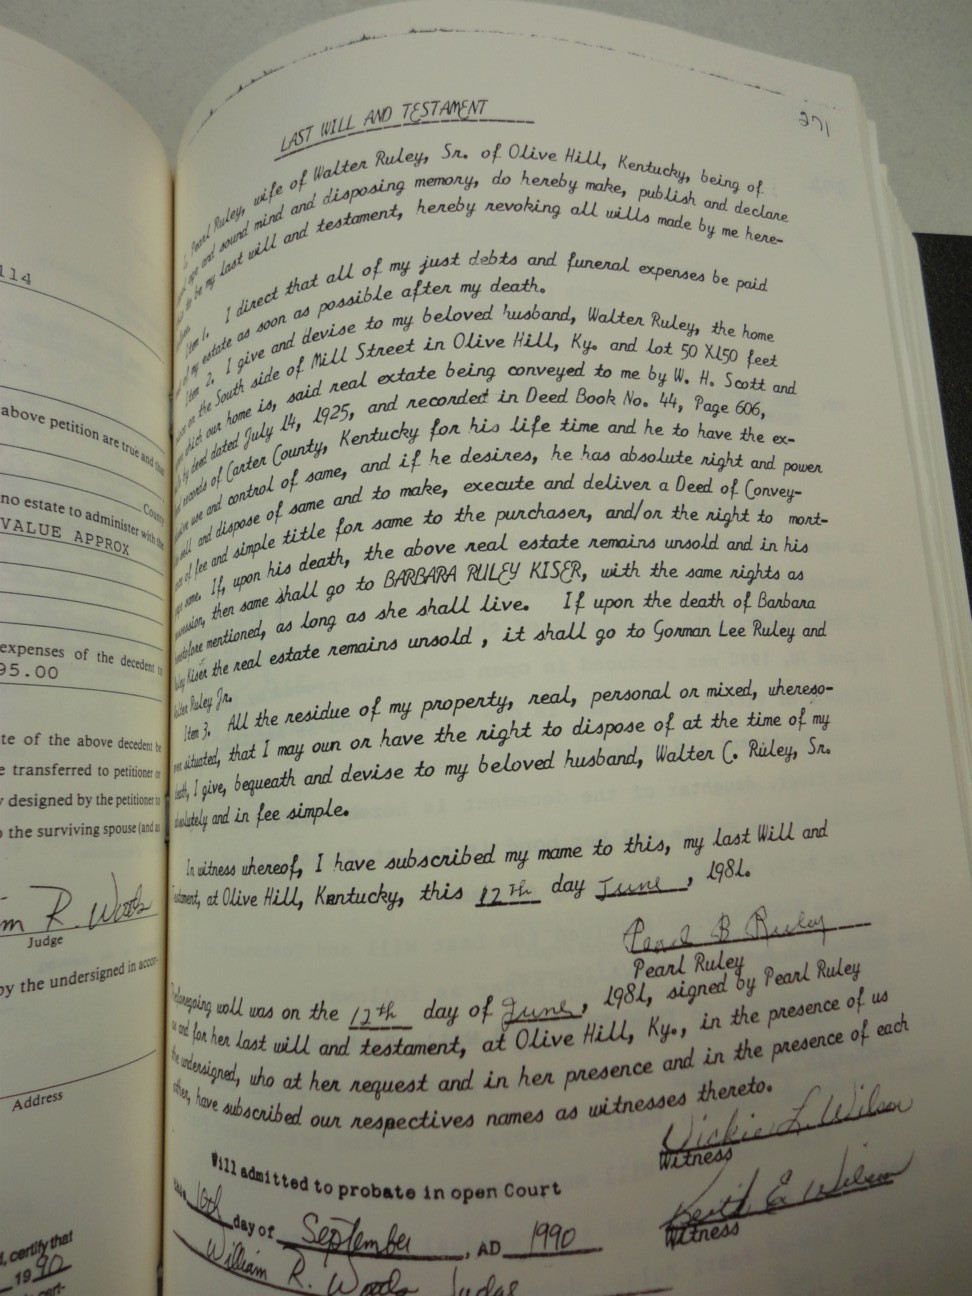 114
above petition are true and that
County
no estate to administer with the
VALUE APPROX
expenses of the decedent to
95.00
te of the above decedent be
e transferred to petitioner or
y designed by the petitioner to
o the surviving spouse (and as
m R. Woods
Judge
by the undersigned in accor-
Address
certify that
1990
271
LAST WILL AND TESTAMENT
I, Pearl Ruley, wife of Walter Ruley, Sr. of Olive Hill, Kentucky, being of
age and sound mind and disposing memory, do hereby make, publish and declare
to be my last will and testament, hereby revoking all wills made by me here-
Item 1. I direct that all of my just debts and funeral expenses be paid
of my estate as soon as possible after my death.
Item 2. I give and devise to my beloved husband, Walter Ruley, the home
on the South side of Mill Street in Olive Hill, Ky. and lot 50 X150 feet
which our home is, said real extate being conveyed to me by W. H. Scott and
by deed dated July 14, 1925, and recorded in Deed Book No. 44, Page 606,
records of Carter County, Kentucky for his life time and he to have the ex-
use and control of same, and if he desires, he has absolute right and power
sell and dispose of same and to make, execute and deliver a Deed of Convey-
of fee and simple title for same to the purchaser, and/or the right to mort-
same. If, upon his death, the above real estate remains unsold and in his
then same shall go to BARBARA RULEY KISER, with the same rights as
mentioned, as long as she shall live. If upon the death of Barbara
Ruley Kiser the real estate remains unsold, it shall go to Gorman Lee Ruley and
Walter Ruley Jr.
Item 3. All the residue of my property, real, personal or mixed, whereso-
situated, that I may own or have the right to dispose of at the time of my
death, I give, bequeath and devise to my beloved husband, Walter C. Ruley, Sr.
absolutely and in fee simple.
In witness whereof, I have subscribed my mame to this, my last Will and
Testament, at Olive Hill, Kentucky, this 12th day June, 1981.
Pearl B Ruley
Pearl Ruley
foregoing woll was on the 12th day of June, 1981, signed by Pearl Ruley
as and for her last will and testament, at Olive Hill, Ky., in the presence of us
the undersigned, who at her request and in her presence and in the presence of each
other, have subscribed our respectives names as witnesses thereto.
Vickie L. Wilson
Witness
Keith E Wilson
Witness
Will admitted to probate in open Court
this 10th day of September, AD 1990
William R. Woods Judge